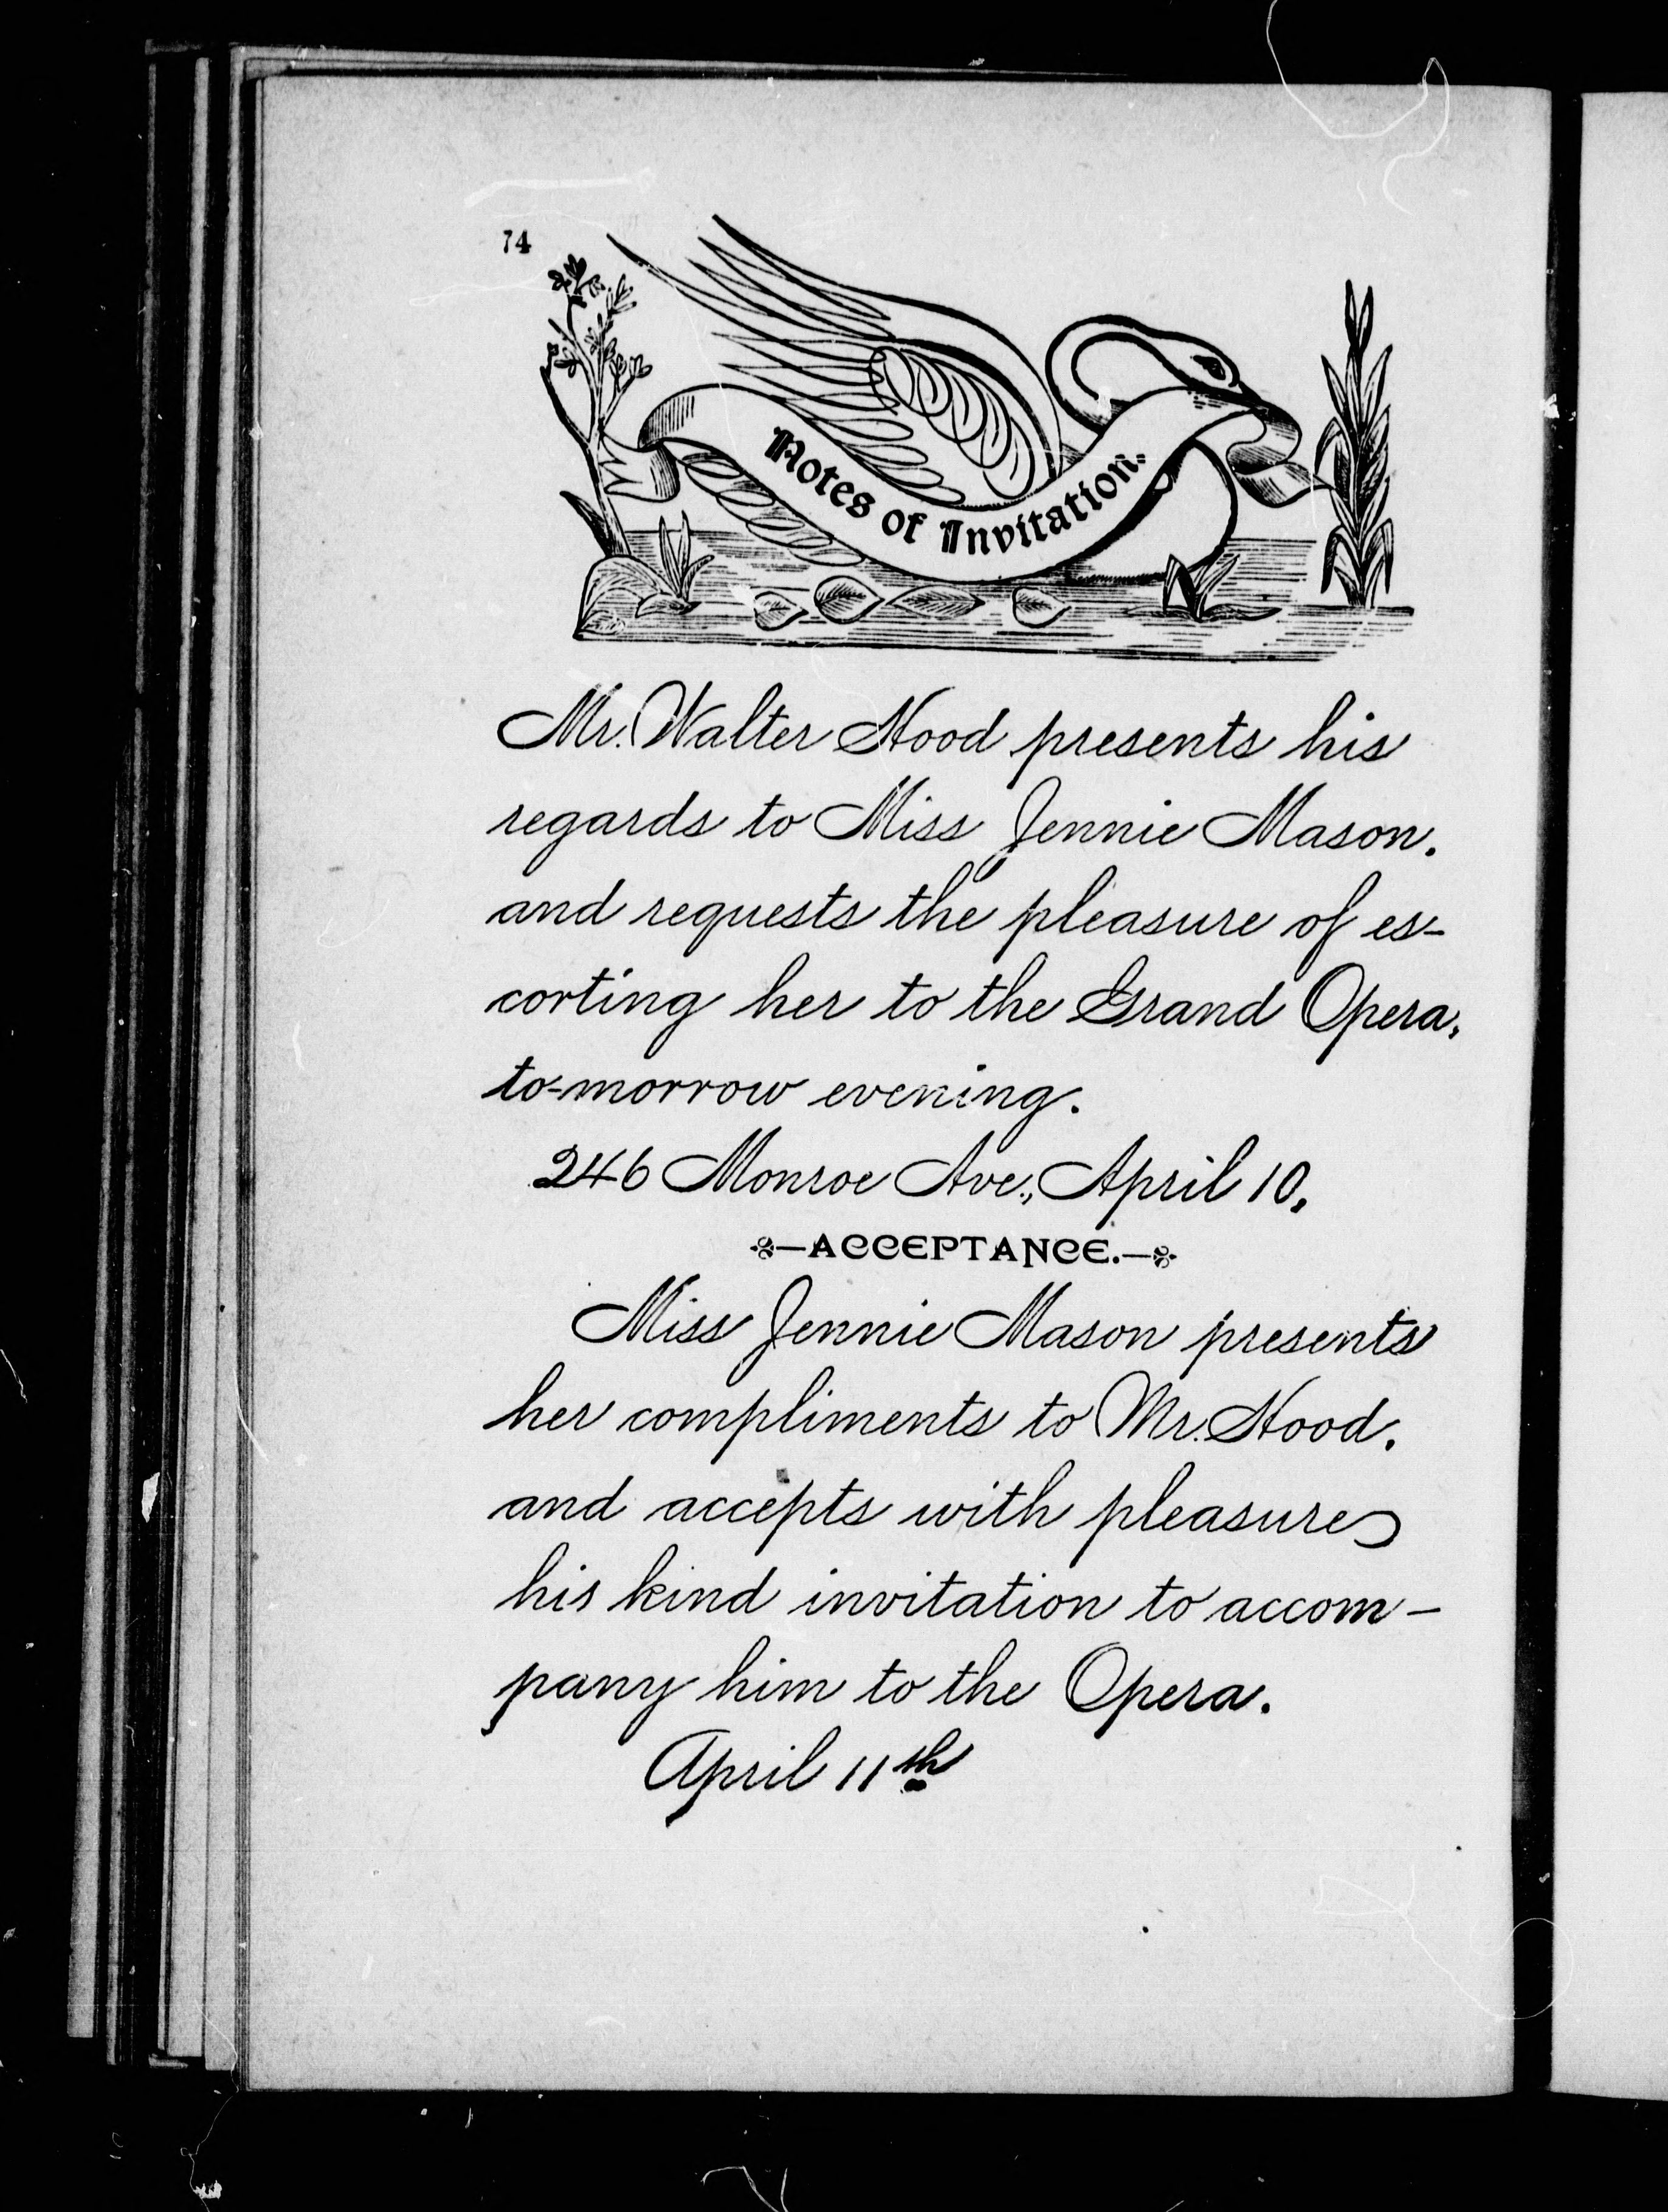 74
Notes of Invitation.
Mr. Walter Hood presents his
regards to Miss Jennie Mason.
and requests the pleasure of es-
corting her to the Grand Opera,
to-morrow evening.
246 Monroe Ave., April 10.
—ACCEPTANCE.—
Miss Jennie Mason presents
her compliments to Mr. Hood.
and accepts with pleasure
his kind invitation to accom-
pany him to the Opera.
April 11th